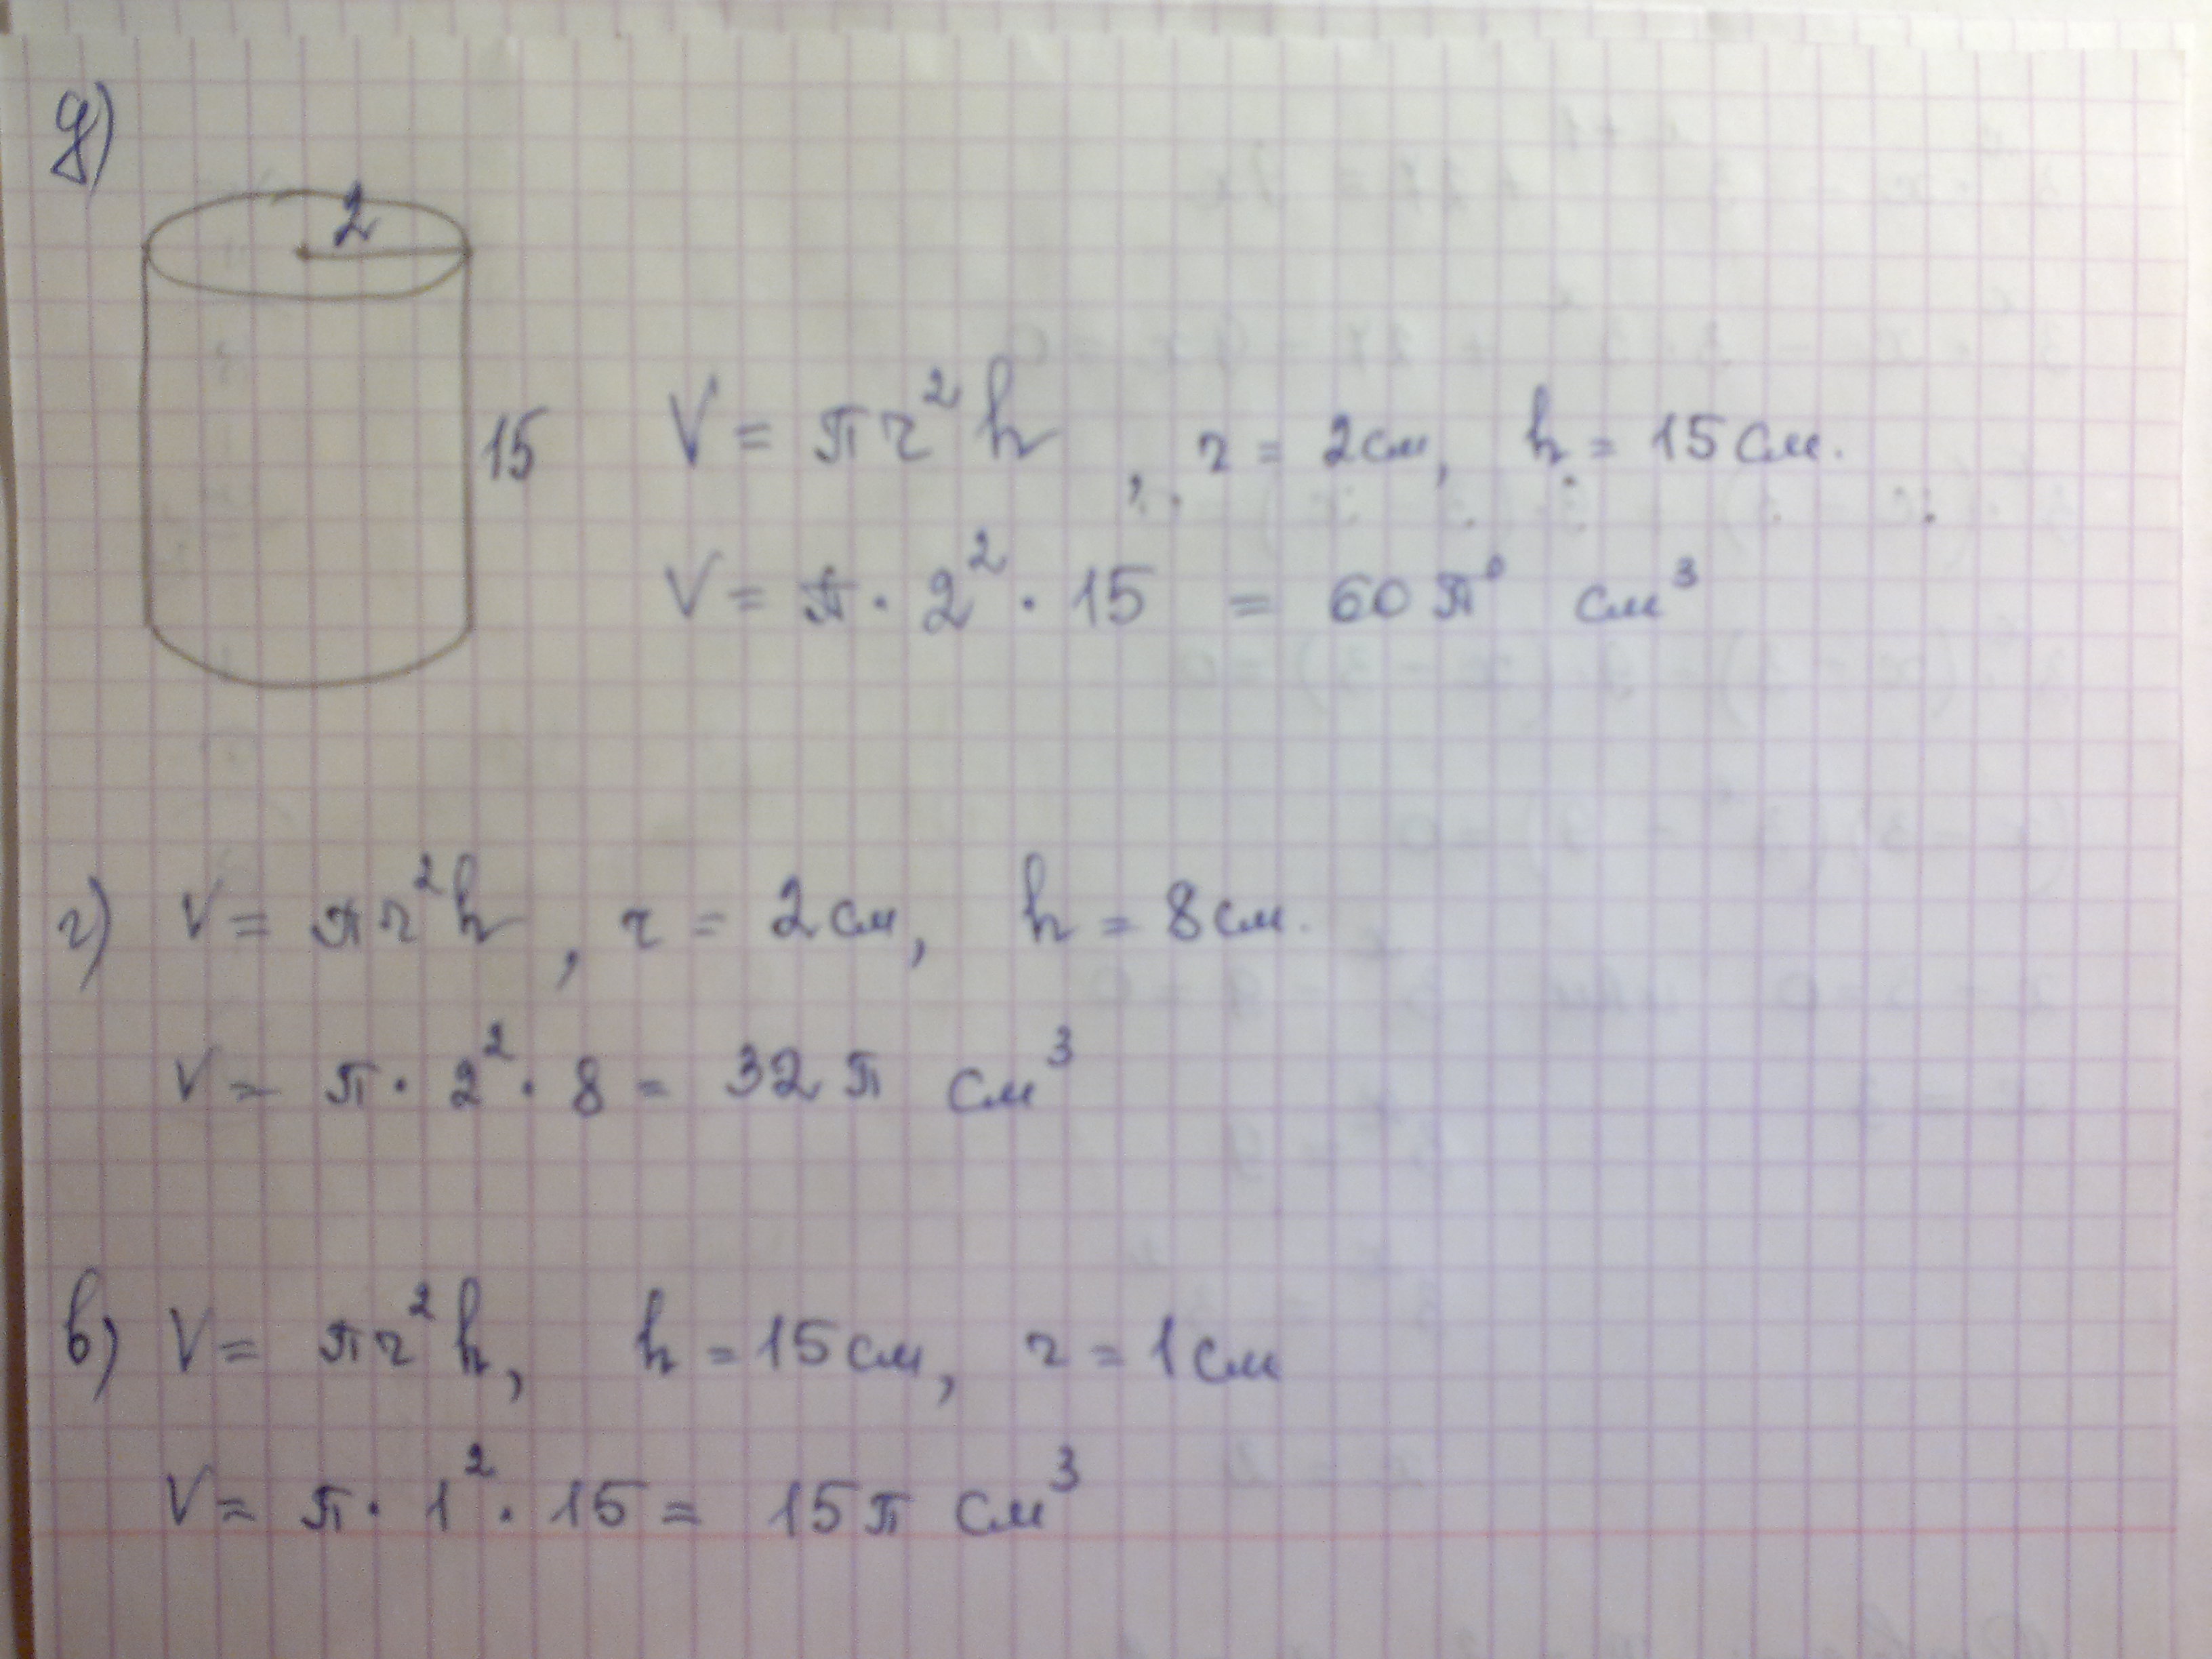 д)
2
15
V = πr²h, r = 2см, h = 15см.
V = π · 2² · 15 = 60π° см³
г) V = πr²h, r = 2см, h = 8см.
V = π · 2² · 8 = 32π см³
в) V = πr²h, h = 15см, r = 1см
V = π · 1² · 15 = 15π см³